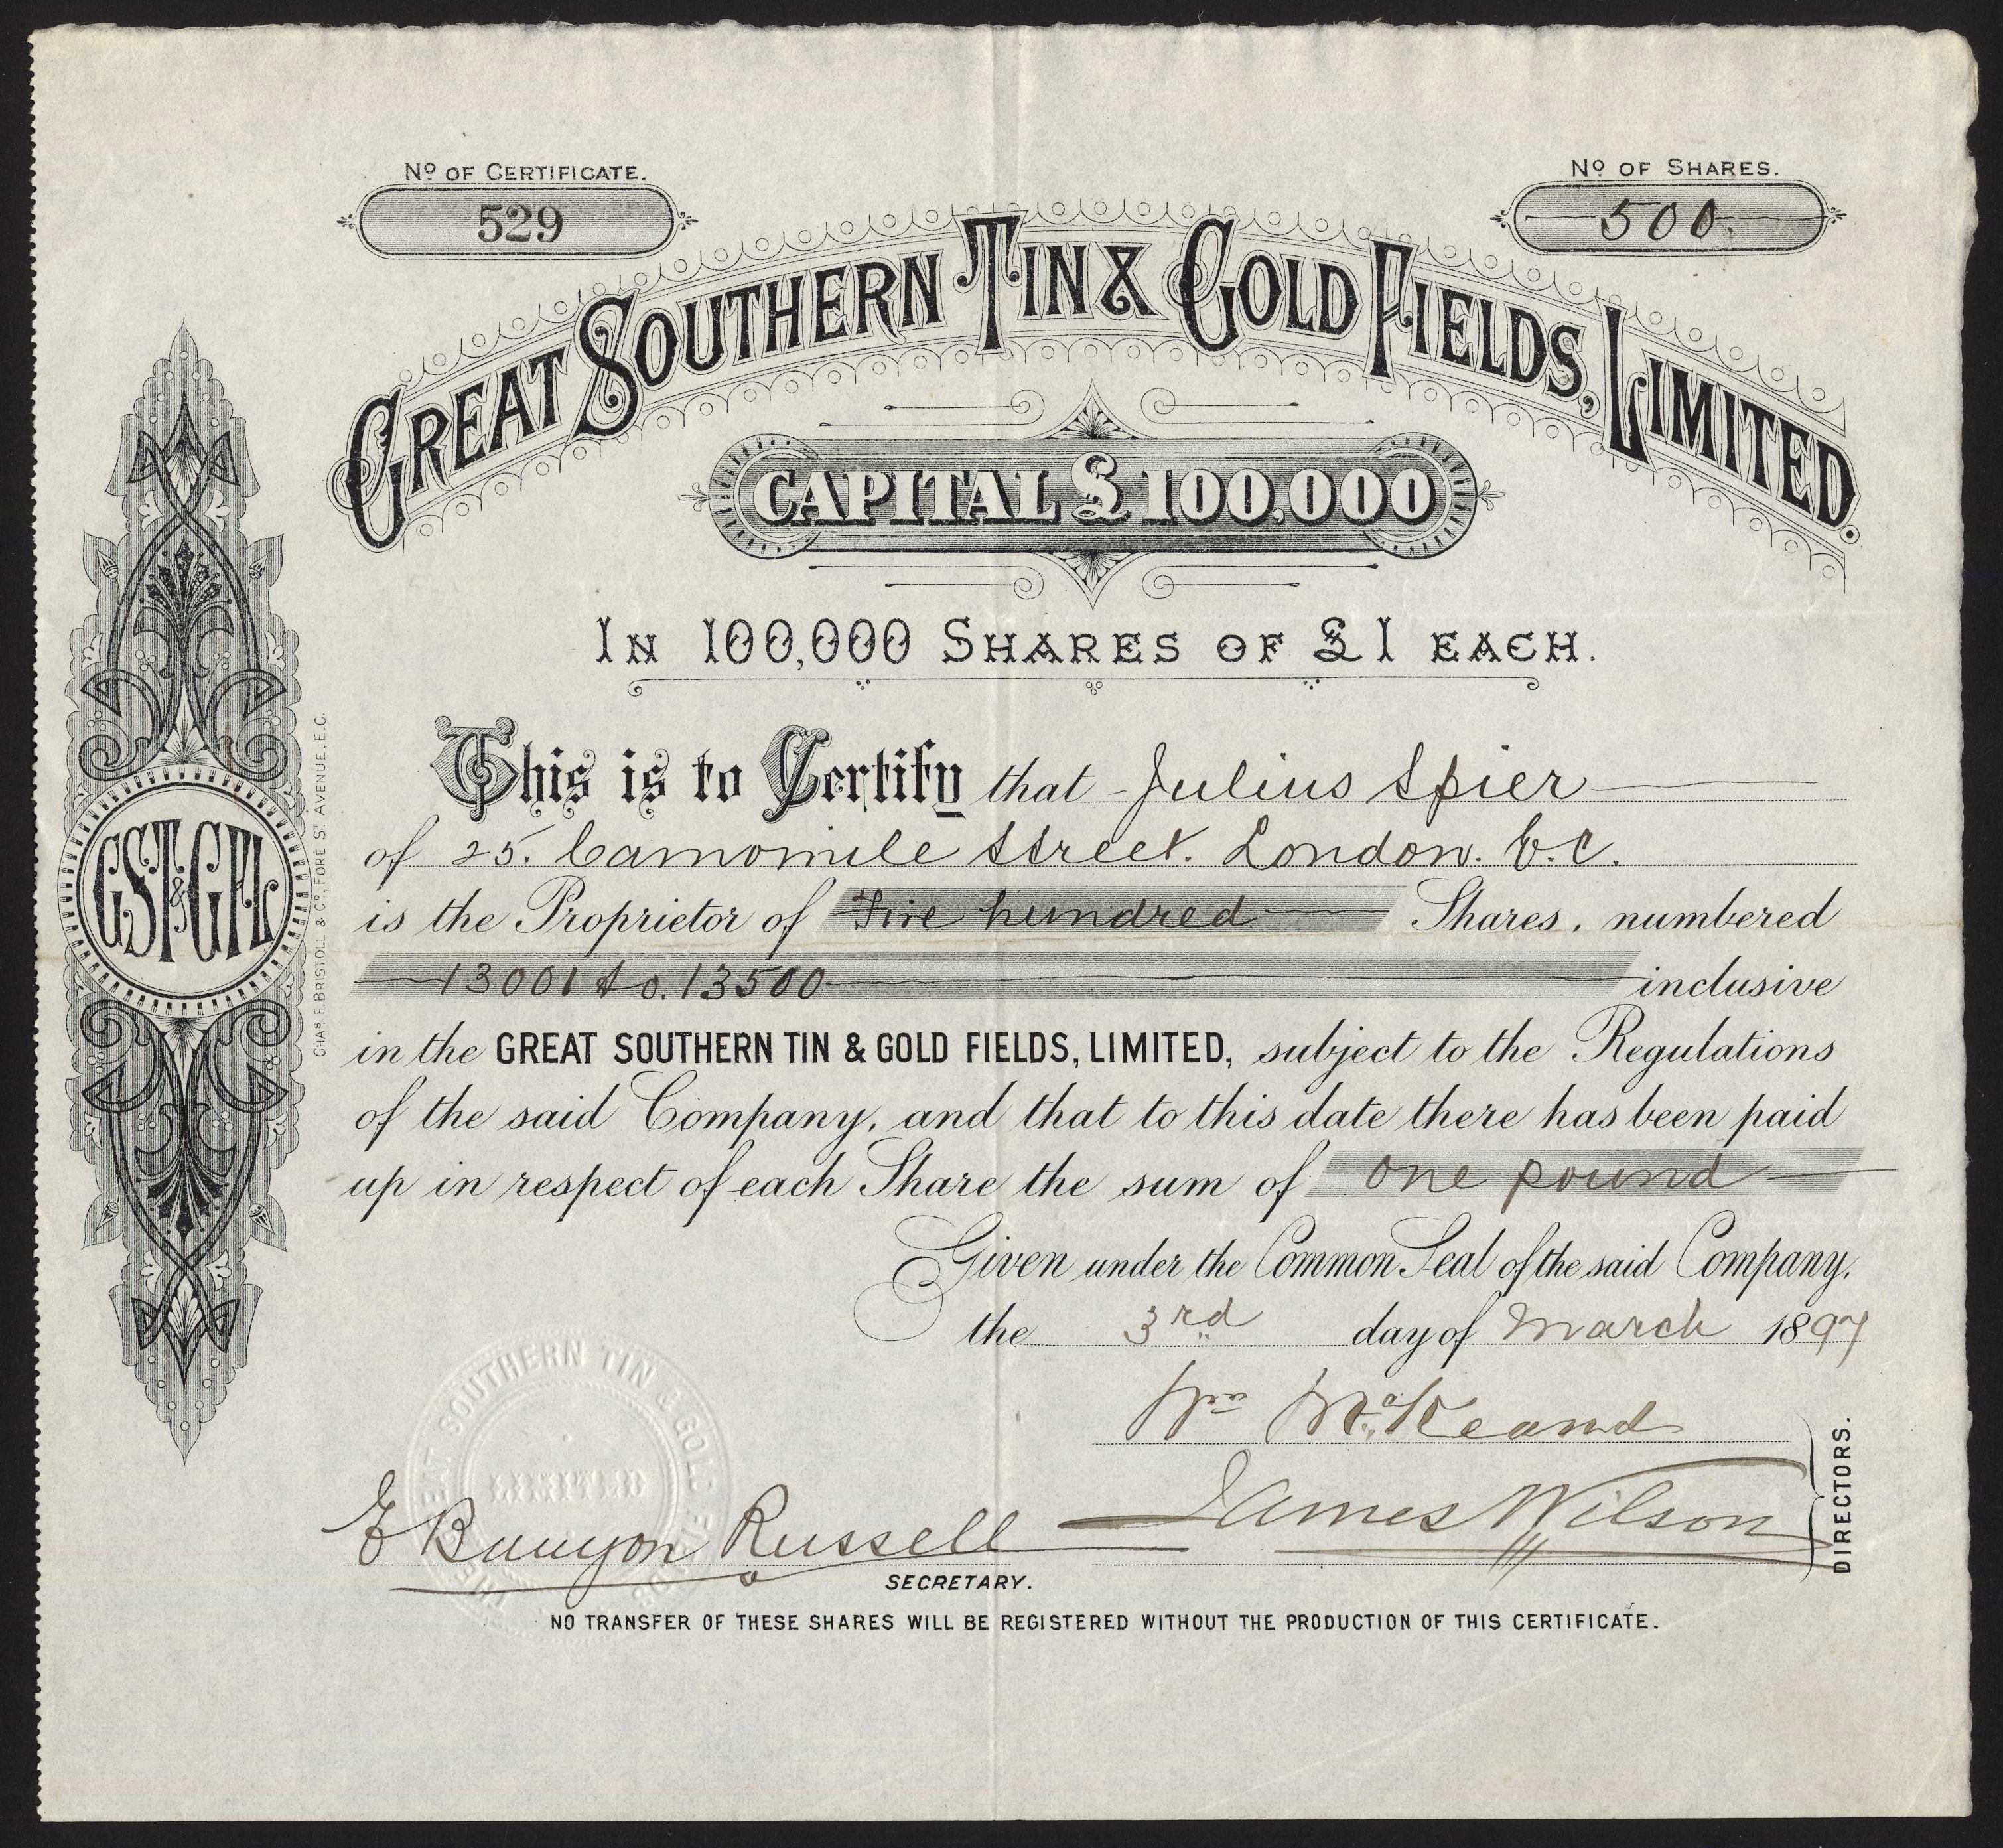 Nº OF CERTIFICATE.
529
Nº OF SHARES.
500.
GREAT SOUTHERN TIN & GOLD FIELDS, LIMITED.
CAPITAL £100,000
IN 100,000 SHARES OF £1 EACH.
This is to Certify that Julius Spier
of 25. Camomile Street. London. E.C.
is the Proprietor of Five hundred Shares, numbered
13001 to. 13500 inclusive
in the GREAT SOUTHERN TIN & GOLD FIELDS, LIMITED, subject to the Regulations
of the said Company, and that to this date there has been paid
up in respect of each Share the sum of One pound
Given under the Common Seal of the said Company,
the 3rd day of March 1897
Wm McKeand
James Wilson
DIRECTORS.
E Bunyon Russell
SECRETARY.
NO TRANSFER OF THESE SHARES WILL BE REGISTERED WITHOUT THE PRODUCTION OF THIS CERTIFICATE.
GST&GFL
CHAS. F. BRISTOLL & Co., FORE ST. AVENUE, E.C.
GREAT SOUTHERN TIN & GOLD FIELDS
LIMITED